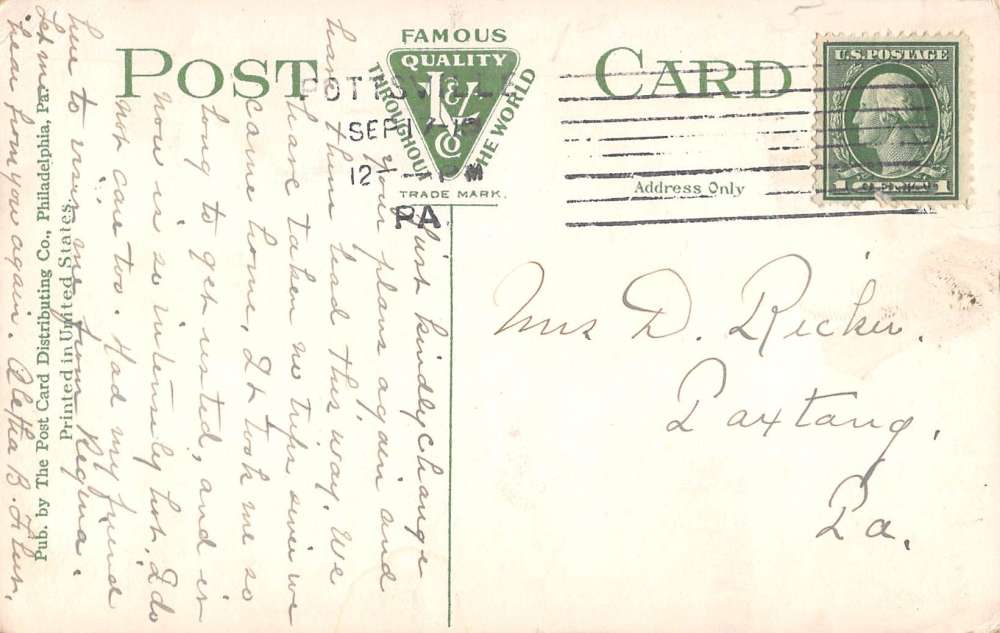 POST CARD
FAMOUS
QUALITY
THROUGHOUT THE WORLD
L & Co
TRADE MARK.
POTTSVILLE
SEP 17
12 — PM
PA.
U.S. POSTAGE
1 1
Address Only
Mrs D. Ricker.
Paxtang,
Pa.
Just kindly change
your plans again and
have them lead this way. We
have taken no trips since we
came home, It took me so
long to get rested, and is
now is so intensely hot, I do
not care too. Had my friend
here to visit me from Regina.
Let me
hear from you again. Aletha B.
Pub. by The Post Card Distributing Co., Philadelphia, Pa.
Printed in United States.